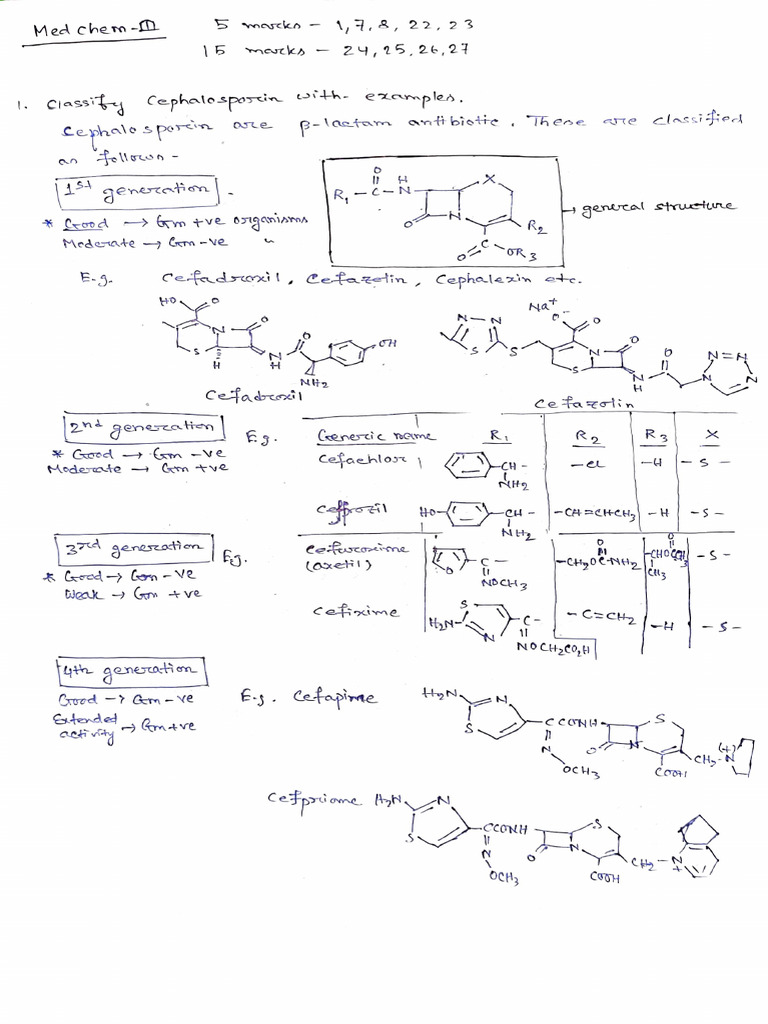 Med chem-III
5 marks - 1,7,8, 22, 23
15 marks - 24, 25, 26, 27
1. Classify Cephalosporin with examples.
Cephalosporin are β-lactam antibiotic. These are classified
as follows -
1st generation -
* Good → Gm +ve organisms
Moderate → Gm -ve "
R1 - C - N
O
H
X
O
N
R2
C
O
OR3
→ general structure
E.g. Cefadroxil, Cefazolin, Cephalexin etc.
HO
O
N
O
S
H
N
H
O
OH
NH2
Cefadroxil
Na+
O-
O
N - N
S
S
N
O
S
N
H
O
N=N
N
N
Cefazolin
2nd generation
* Good → Gm -ve
Moderate → Gm +ve
E.g.
Generic name R1 R2 R3 X
Cefachlor -CH- NH2 -Cl -H -S-
Cefprozil HO- -CH- NH2 -CH=CHCH3 -H -S-
3rd generation
* Good → Gm -ve
Weak → Gm +ve
Eg.
Cefuroxime (axetil) O -C- NOCH3 -CH2OC-NH2 O -CHOCCH3 O CH3 -S-
Cefixime S H2N- N -C- NOCH2CO2H -C=CH2 -H -S-
4th generation
Good → Gm -ve
Extended activity → Gm +ve
E.g. Cefapime
H2N
N
S
C CONH
N
OCH3
S
O
N
COOH
CH2-N
(+)
Cefpriome
H2N
N
S
CCONH
N
OCH3
S
O
N
COOH
CH2-N
+